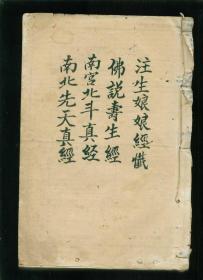 注生娘娘經懺
佛說壽生經
南宮北斗真经
南北先天真經